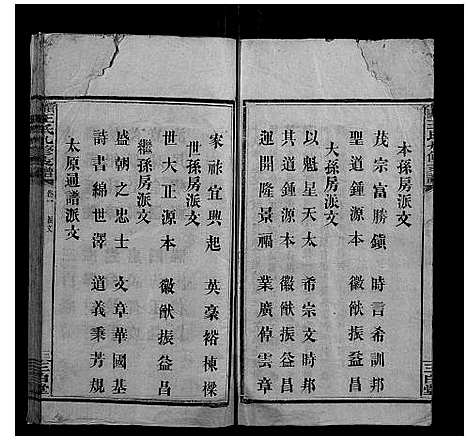 本孫房派文
茂宗富勝鎮 時言希訓邦
聖道鍾源本 徽猷振益昌
大孫房派文
以魁星天太 希宗文時邦
其道鍾源本 徽猷振益昌
世運隆景福 業廣倬雲章
家祚宜興起 英豪裕棟樑
世孫房派文
世大正源本 徽猷振益昌
繼孫房派文
盛朝之忠士 文章華國基
詩書綿世澤 道義秉芳規
太原通譜派文
王氏九修支譜
卷一
派文
三
三槐堂